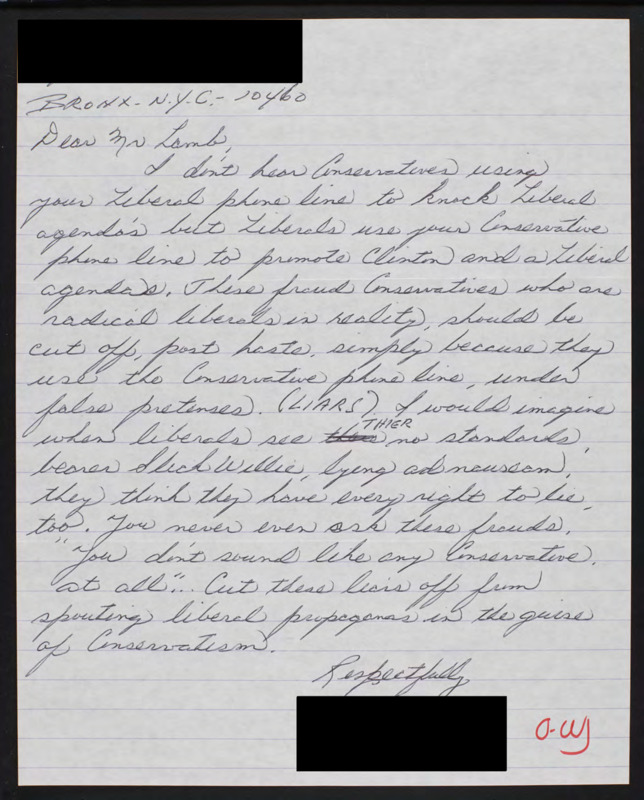 BRONX - N.Y.C. - 10460
Dear Mr Lamb,
I dont hear Conservatives using
your Liberal phone line to knock Liberal
agenda's but Liberals use your Conservative
phone line to promote Clinton and a Liberal
agendas. These fraud Conservatives who are
radical liberals in reality, should be
cut off, post haste, simply because they
use the Conservative phone line, under
false pretenses. (LIARS) I would imagine
when liberals see THIER no standards
bearer Slick Willie, lying ad nauseam,
they think they have every right to lie,
too. You never even ask these frauds,
"You dont sound like any Conservative,
at all"... Cut these liars off from
spouting liberal in the guise
of Conservatism.
Respectfully